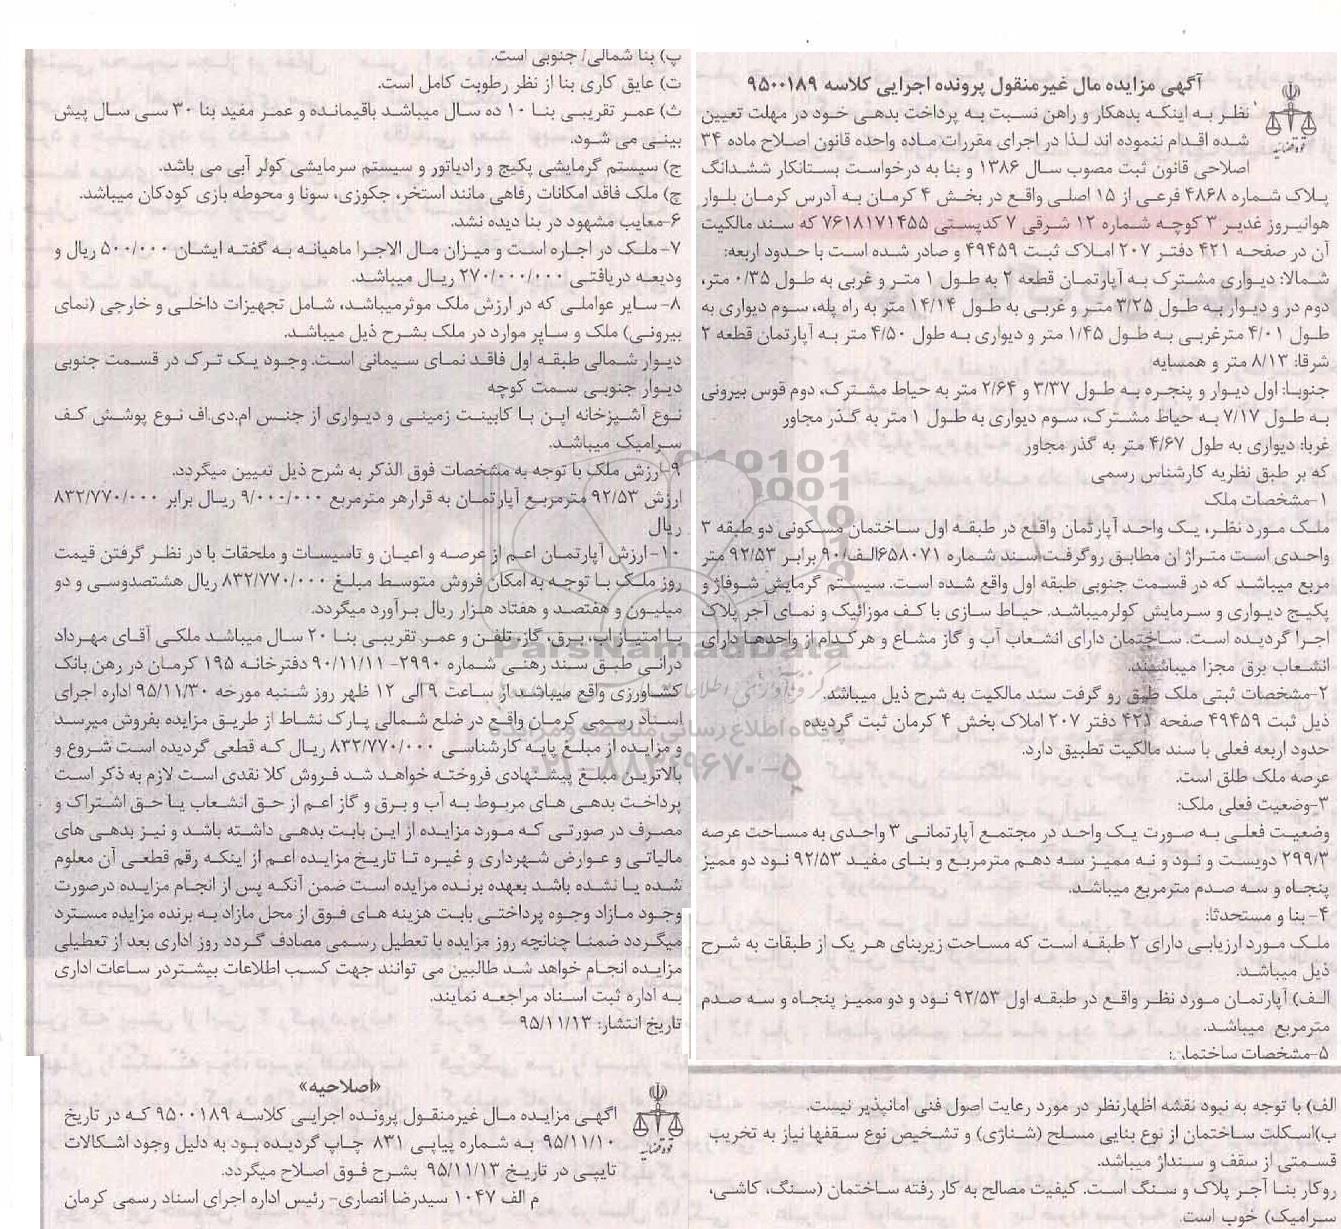 آگهی مزایده مال غیرمنقول پرونده اجرایی کلاسه ۹۵۰۰۱۸۹
نظر به اینکه بدهکار و راهن نسبت به پرداخت بدهی خود در مهلت تعیین
شده اقدام ننموده اند لذا در اجرای مقررات ماده واحده قانون اصلاح ماده ۳۴
اصلاحی قانون ثبت مصوب سال ۱۳۸۶ و بنا به درخواست بستانکار ششدانگ
پلاک شماره ۴۸۶۸ فرعی از ۱۵ اصلی واقع در بخش ۴ کرمان به آدرس کرمان بلوار
هوانیروز غدیر ۳ کوچه شماره ۱۲ شرقی ۷ کدپستی ۷۶۱۸۱۷۱۴۵۵ که سند مالکیت
آن در صفحه ۴۲۱ دفتر ۲۰۷ املاک ثبت ۴۹۴۵۹ و صادر شده است با حدود اربعه:
شمالا: دیواری مشترک به آپارتمان قطعه ۲ به طول ۱ متر و غربی به طول ۰/۳۵ متر،
دوم در و دیوار به طول ۳/۲۵ متر و غربی به طول ۱۴/۱۴ متر به راه پله، سوم دیواری به
طول ۴/۰۱ مترغربی به طول ۱/۴۵ متر و دیواری به طول ۴/۵۰ متر به آپارتمان قطعه ۲
شرقا: ۸/۱۳ متر و همسایه
جنوبا: اول دیوار و پنجره به طول ۳/۳۷ و ۲/۶۴ متر به حیاط مشترک، دوم قوس بیرونی
به طول ۷/۱۷ به حیاط مشترک، سوم دیواری به طول ۱ متر به گذر مجاور
غربا: دیواری به طول ۴/۶۷ متر به گذر مجاور
که بر طبق نظریه کارشناس رسمی
۱-مشخصات ملک
ملک مورد نظر، یک واحد آپارتمان واقع در طبقه اول ساختمان مسکونی دو طبقه ۳
واحدی است متراژ ان مطابق روگرفت سند شماره ۶۵۸۰۷۱الف/۹۰ برابر ۹۲/۵۳ متر
مربع میباشد که در قسمت جنوبی طبقه اول واقع شده است. سیستم گرمایش شوفاژ و
پکیج دیواری و سرمایش کولرمیباشد. حیاط سازی با کف موزائیک و نمای آجر پلاک
اجرا گردیده است. ساختمان دارای انشعاب آب و گاز مشاع و هر کدام از واحدها دارای
انشعاب برق مجزا میباشند.
۲-مشخصات ثبتی ملک طبق رو گرفت سند مالکیت به شرح ذیل میباشد
ذیل ثبت ۴۹۴۵۹ صفحه ۴۲۱ دفتر ۲۰۷ املاک بخش ۴ کرمان ثبت گردیده
حدود اربعه فعلی با سند مالکیت تطبیق دارد.
عرصه ملک طلق است.
۳-وضعیت فعلی ملک:
وضعیت فعلی به صورت یک واحد در مجتمع آپارتمانی ۳ واحدی به مساحت عرصه
۲۹۹/۳ دویست و نود و نه ممیز سه دهم مترمربع و بنای مفید ۹۲/۵۳ نود دو ممیز
پنجاه و سه صدم مترمربع میباشد.
۴-بنا و مستحدثا:
ملک مورد ارزیابی دارای ۲ طبقه است که مساحت زیربنای هر یک از طبقات به شرح
ذیل میباشد.
الف) آپارتمان مورد نظر واقع در طبقه اول ۹۲/۵۳ نود و دو ممیز پنجاه و سه صدم
مترمربع میباشد.
۵-مشخصات ساختمان:
الف) با توجه به نبود نقشه اظهارنظر در مورد رعایت اصول فنی امانپذیر نیست.
ب)اسکلت ساختمان از نوع بنایی مسلح (شناژی) و تشخیص نوع سقفها نیاز به تخریب
قسمتی از سقف و سنداژ میباشد.
روکار بنا آجر پلاک و سنگ است. کیفیت مصالح به کار رفته ساختمان (سنگ، کاشی،
سرامیک) خوب است.
پ) بنا شمالی/ جنوبی است.
ت) عایق کاری بنا از نظر رطوبت کامل است.
ث) عمر تقریبی بنا ۱۰ ده سال میباشد باقیمانده و عمر مفید بنا ۳۰ سی سال پیش
بینی می شود.
ج) سیستم گرمایشی پکیج و رادیاتور و سیستم سرمایشی کولر آبی می باشد.
چ) ملک فاقد امکانات رفاهی مانند استخر، جکوزی، سونا و محوطه بازی کودکان میباشد.
۶-معایب مشهود در بنا دیده نشد.
۷- ملک در اجاره است و میزان مال الاجرا ماهیانه به گفته ایشان ۵۰۰/۰۰۰ ریال و
ودیعه دریافتی ۲۷۰/۰۰۰/۰۰۰ ریال میباشد.
۸- سایر عواملی که در ارزش ملک موثرمیباشد، شامل تجهیزات داخلی و خارجی (نمای
بیرونی) ملک و سایر موارد در ملک بشرح ذیل میباشد.
دیوار شمالی طبقه اول فاقد نمای سیمانی است. وجود یک ترک در قسمت جنوبی
دیوار جنوبی سمت کوچه
نوع آشپزخانه اپن با کابینت زمینی و دیواری از جنس ام.دی.اف نوع پوشش کف
سرامیک میباشد.
۹-ارزش ملک با توجه به مشخصات فوق الذکر به شرح ذیل تعیین میگردد.
ارزش ۹۲/۵۳ مترمربع آپارتمان به قرارهر مترمربع ۹/۰۰۰/۰۰۰ ریال برابر ۸۳۲/۷۷۰/۰۰۰
ریال
۱۰-ارزش آپارتمان اعم از عرصه و اعیان و تاسیسات و ملحقات با در نظر گرفتن قیمت
روز ملک با توجه به امکان فروش متوسط مبلغ ۸۳۲/۷۷۰/۰۰۰ ریال هشتصدوسی و دو
میلیون و هفتصد و هفتاد هزار ریال برآورد میگردد.
با امتیاز اب، برق، گاز، تلفن و عمر تقریبی بنا ۲۰ سال میباشد ملکی آقای مهرداد
درانی طبق سند رهنی شماره ۲۹۹۰-۹۰/۱۱/۱۱ دفترخانه ۱۹۵ کرمان در رهن بانک
کشاورزی واقع میباشد از ساعت ۹ الی ۱۲ ظهر روز شنبه مورخه ۹۵/۱۱/۳۰ اداره اجرای
اسناد رسمی کرمان واقع در ضلع شمالی پارک نشاط از طریق مزایده بفروش میرسد
و مزایده از مبلغ پایه کارشناسی ۸۳۲/۷۷۰/۰۰۰ ریال که قطعی گردیده است شروع و
بالاترین مبلغ پیشنهادی فروخته خواهد شد فروش کلا نقدی است لازم به ذکر است
پرداخت بدهی های مربوط به آب و برق و گاز اعم از حق انشعاب یا حق اشتراک و
مصرف در صورتی که مورد مزایده از این بابت بدهی داشته باشد و نیز بدهی های
مالیاتی و عوارض شهرداری و غیره تا تاریخ مزایده اعم از اینکه رقم قطعی آن معلوم
شده یا نشده باشد بعهده برنده مزایده است ضمن آنکه پس از انجام مزایده درصورت
وجود مازاد وجوه پرداختی بابت هزینه های فوق از محل مازاد به برنده مزایده مسترد
میگردد ضمنا چنانچه روز مزایده با تعطیل رسمی مصادف گردد روز اداری بعد از تعطیلی
مزایده انجام خواهد شد طالبین می توانند جهت کسب اطلاعات بیشتردر ساعات اداری
به اداره ثبت اسناد مراجعه نمایند.
تاریخ انتشار: ۹۵/۱۱/۱۳
«اصلاحیه»
اگهی مزایده مال غیرمنقول پرونده اجرایی کلاسه ۹۵۰۰۱۸۹ که در تاریخ
۹۵/۱۱/۱۰ به شماره پیاپی ۸۳۱ چاپ گردیده بود به دلیل وجود اشکالات
تایپی در تاریخ ۹۵/۱۱/۱۳ بشرح فوق اصلاح میگردد.
م الف ۱۰۴۷ سیدرضا انصاری- رئیس اداره اجرای اسناد رسمی کرمان
ParsNamadData
پایگاه اطلاع رسانی مناقصه و مزایده
۰۲۱-۸۸۳۴۹۶۷۰-۵